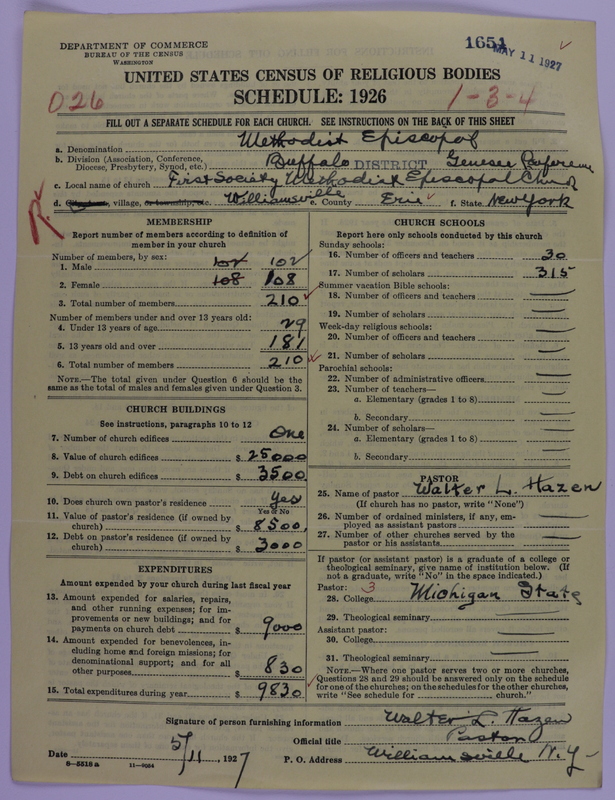 DEPARTMENT OF COMMERCE
BUREAU OF THE CENSUS
WASHINGTON
1654
MAY 11 1927
UNITED STATES CENSUS OF RELIGIOUS BODIES
SCHEDULE: 1926
026
1-3-4
FILL OUT A SEPARATE SCHEDULE FOR EACH CHURCH. SEE INSTRUCTIONS ON THE BACK OF THIS SHEET
a. Denomination Methodist Episcopal
b. Division (Association, Conference, Diocese, Presbytery, Synod, etc.) Buffalo DISTRICT Genesee Conference
c. Local name of church First Society Methodist Episcopal Church
d. City, village, or township, etc. Williamsville e. County Erie f. State New York
R.
MEMBERSHIP
Report number of members according to definition of
member in your church
Number of members, by sex:
1. Male 102 102
2. Female 108 108
3. Total number of members 210
Number of members under and over 13 years old:
4. Under 13 years of age 29
5. 13 years old and over 181
6. Total number of members 210
NOTE.—The total given under Question 6 should be
same as the total of males and females given under Question 3.
CHURCH BUILDINGS
See instructions, paragraphs 10 to 12
7. Number of church edifices One
8. Value of church edifices $ 25000
9. Debt on church edifices $ 3500
10. Does church own pastor's residence Yes
Yes or No
11. Value of pastor's residence (if owned by
church) $ 8500
12. Debt on pastor's residence (if owned by
church) $ 3000
EXPENDITURES
Amount expended by your church during last fiscal year
13. Amount expended for salaries, repairs,
and other running expenses; for im-
provements or new buildings; and for
payments on church debt $ 9000
14. Amount expended for benevolences, in-
cluding home and foreign missions; for
denominational support; and for all
other purposes $ 830
15. Total expenditures during year $ 9830
CHURCH SCHOOLS
Report here only schools conducted by this church
Sunday schools:
16. Number of officers and teachers 30
17. Number of scholars 315
Summer vacation Bible schools:
18. Number of officers and teachers
19. Number of scholars
Week-day religious schools:
20. Number of officers and teachers
21. Number of scholars
Parochial schools:
22. Number of administrative officers
23. Number of teachers—
a. Elementary (grades 1 to 8)
b. Secondary
24. Number of scholars—
a. Elementary (grades 1 to 8)
b. Secondary
PASTOR
25. Name of pastor Walter L. Hazen
(If church has no pastor, write "None")
26. Number of ordained ministers, if any, em-
ployed as assistant pastors
27. Number of other churches served by the
pastor or his assistants
If pastor (or assistant pastor) is a graduate of a college or
theological seminary, give name of institution below. (If
not a graduate, write "No" in the space indicated.)
Pastor: 3
28. College Michigan State
29. Theological seminary
Assistant pastor:
30. College
31. Theological seminary
NOTE.—Where one pastor serves two or more churches,
Questions 28 and 29 should be answered only on the schedule
for one of the churches; on the schedules for the other churches,
write "See schedule for church."
Signature of person furnishing information Walter L. Hazen
Official title Pastor
Date 5/11, 1927 P. O. Address Williamsville N.Y.
8—5518 a 11—9024